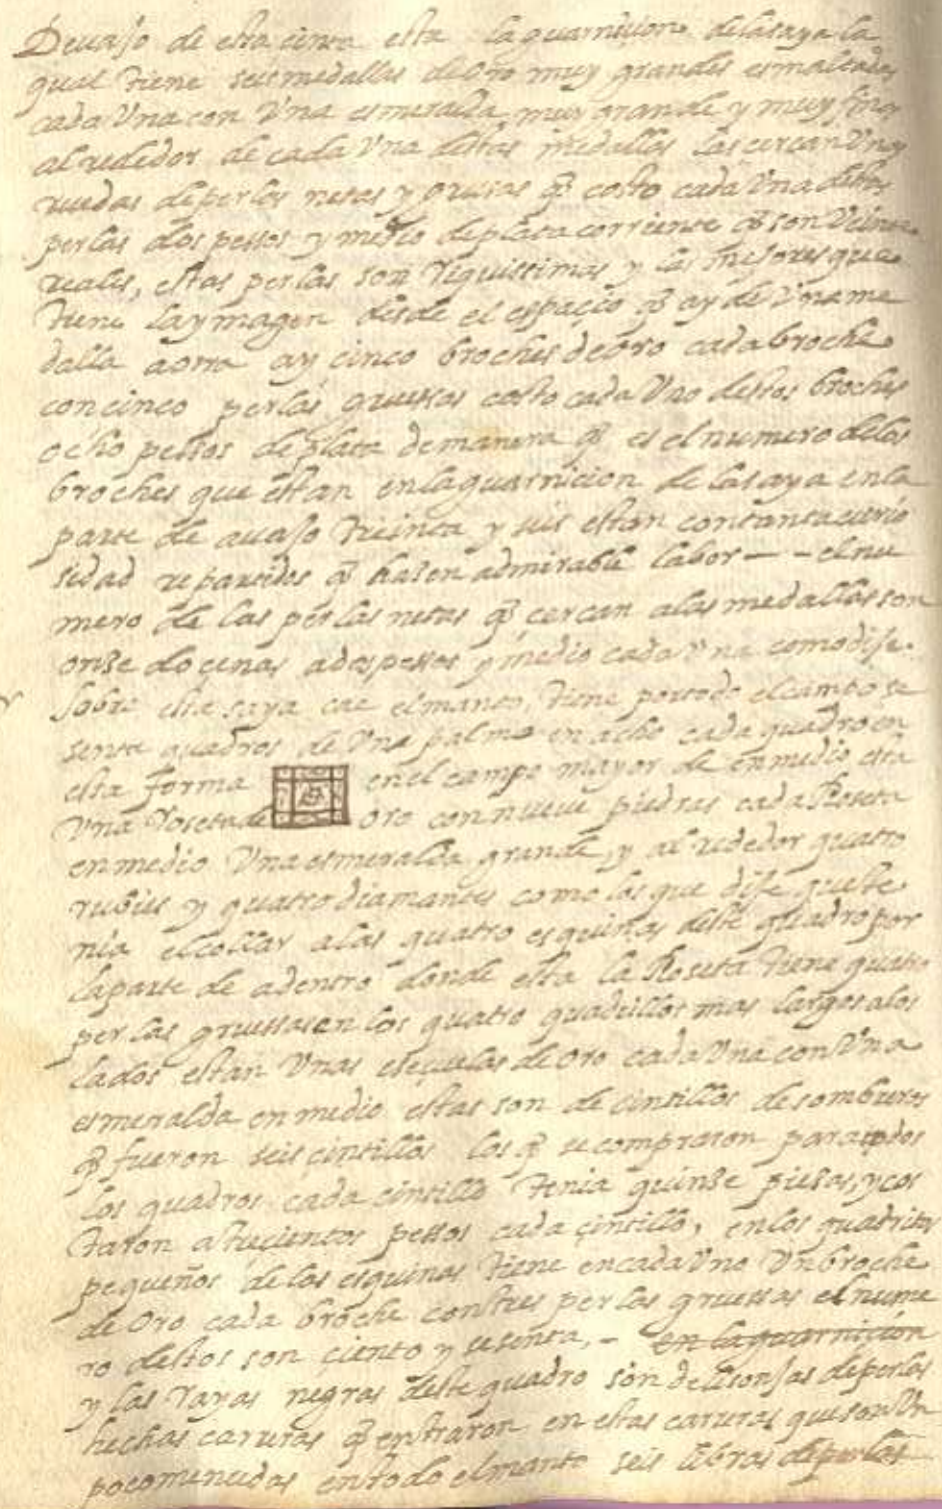 Devajo de esta cinta esta la guarnicion de la saya la
qual tiene seis medallas de oro muy grandes esmaltadas
cada Una con Una esmeralda muy grande y muy fina
al rededor de cada Una destas medallas las cercan Unas
ruedas de perlas netas y gruesas q̃ costo cada Una destas
perlas dos pessos y medio de plata corriente q̃ son Veinte
reales, estas perlas son riquissimas y las mejores que
tiene la ymagen desde el espaçio q̃ ay de Una me
dalla a otra ay cinco broches de oro cada broche
con cinco perlas gruessas costo cada Uno destos broches
ocho pessos de plata de manera q̃ es el numero de los
broches que estan en la guarnicion de la saya en la
parte de avajo treinta y seis estan con tanta curio
sidad repartidos q̃ hasen admirable labor — - el nu
mero de las perlas netas q̃ cercan a las medallas son
onse docenas a dos pessos y medio cada Una como dije.
Sobre esta saya cae el manto, tiene por todo el campo se
senta quadros de Una palma en alto cada quadro en
esta forma en el campo mayor de en medio esta
Una roseta de oro con nueve piedras cada Roseta
en medio Una esmeralda grande, y al rededor quatro
rubies y quatro diamantes como los que dije que te
nia el collar a las quatro esquinas deste quadro por
la parte de adentro donde esta la Roseta tiene quatro
perlas gruessas en los quatro quadrillos mas largos a los
lados estan Unas eseçuelas de oro cada Una con Una
esmeralda en medio estas son de cintillos de sombreros
q̃ fueron seis cintillos los q̃ se compraron para todos
los quadros cada cintillo tenia quinse piesas, y cos
taron a trecientos pessos cada çintillo, en los quadritos
pequeños de las esquinas tiene en cada Uno Un broche
de Oro cada broche con tres perlas gruessas el nume
ro destos son çiento y sesenta, - en la guarniçion
y las rayas negras deste quadro son de lisonjas de perlas
hechas q̃ entraron en estas que son Un
poco menudas en todo el manto seis libras de perlas